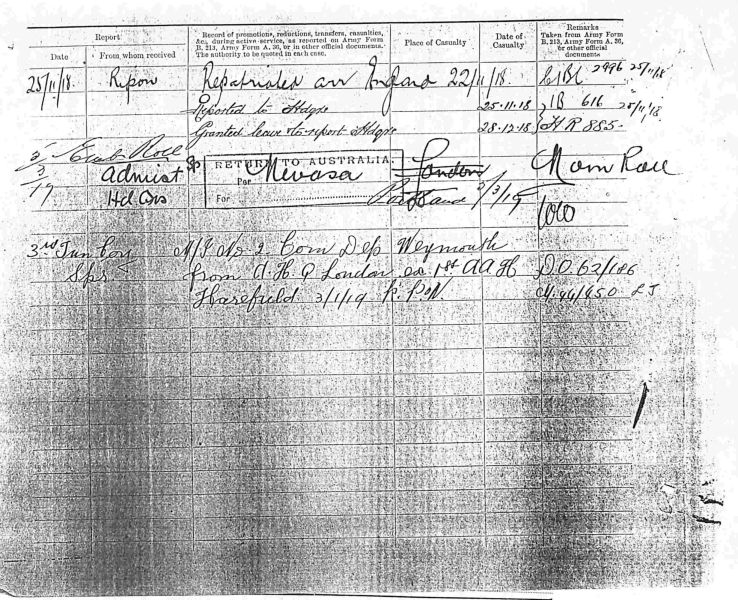 Report
Date
From whom received
Record of promotions, reductions, transfers, casualties,
&c., during active service, as reported on Army Form
B. 213, Army Form A. 36, or in other official documents.
The authority to be quoted in each case.
Place of Casualty
Date of
Casualty
Remarks
Taken from Army Form
B. 213, Army Form A. 36,
or other official
documents
25/11/18. Ripon Repatriated arr England 22/11/18. 2996 25/11/18
Reported to Hdqrs 25.11.18 1B 616 25/11/18
Granted leave & to report Hdqrs 28.12.18 H R 885.
Emb Roll
3/19 Admist
Hd Qrs
RETURN TO AUSTRALIA.
Per Nevasa
For
London
Portland
5/3/19
Nom Roll
3rd Tun Coy M/I No 2 Com Dep Weymouth
Spr from A. H. Q London ex 1st A A H D.O. 62/186
Harefield 3/1/19